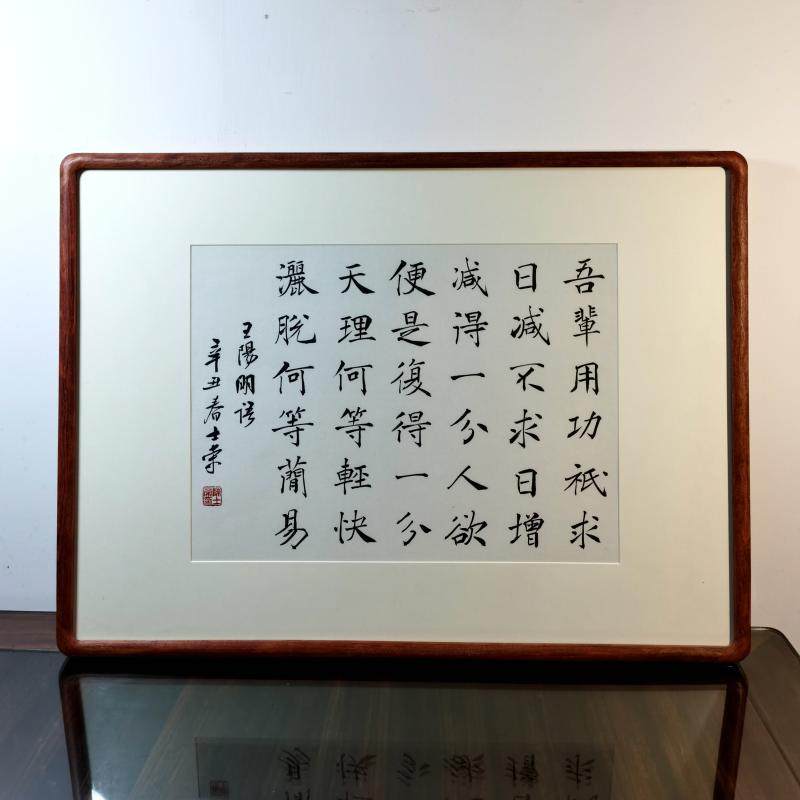 吾輩用功祇求
日減不求日增
減得一分人欲
便是復得一分
天理何等輕快
灑脫何等簡易
王陽明語
辛丑春士棠